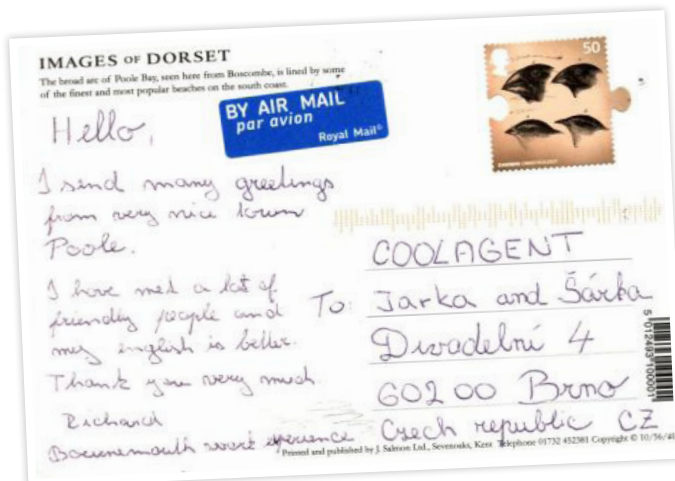 IMAGES OF DORSET
The broad arc of Poole Bay, seen here from Boscombe, is lined by some
of the finest and most popular beaches on the south coast.
50
BY AIR MAIL
par avion
Royal Mail®
Hello,
I send many greetings
from very nice town
Poole.
I have met a lot of
friendly people and
my english is better.
Thank you very much
Richard
Bournemouth work
COOLAGENT
To: Jarka and Šárka
Divadelní 4
602 00 Brno
Czech republic CZ
Printed and published by J. Salmon Ltd., Sevenoaks, Kent. Telephone 01732 452381 Copyright ©
5 012493 100001